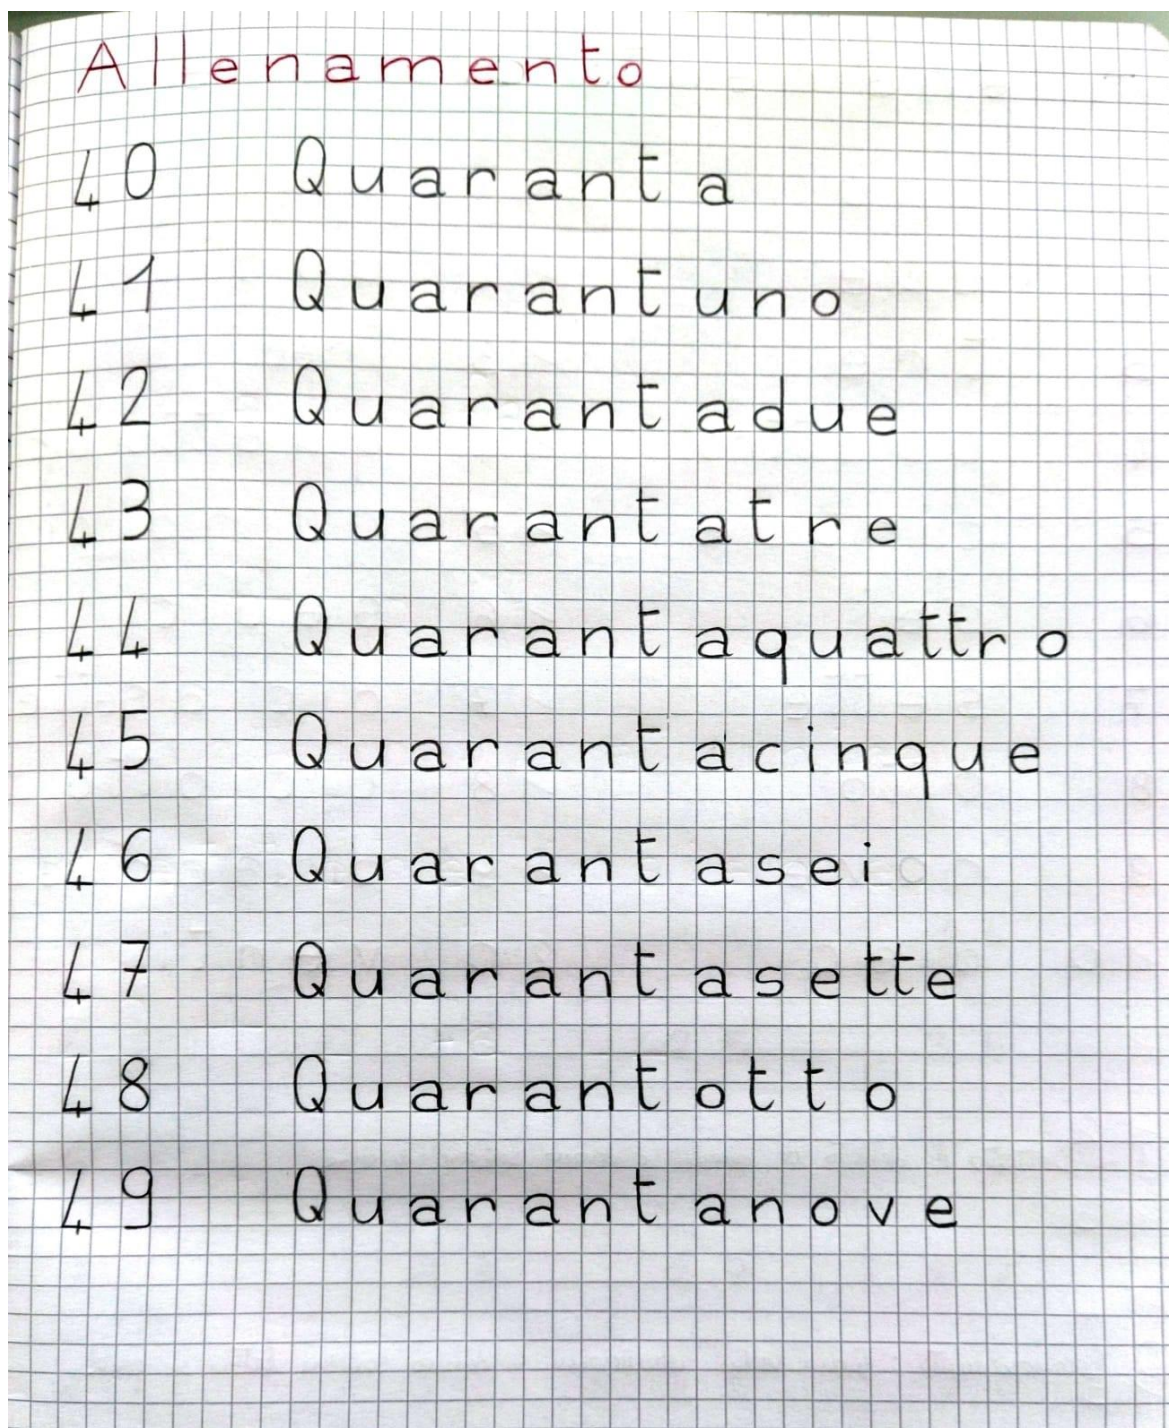 Allenamento
40 Quaranta
41 Quarantuno
42 Quarantadue
43 Quarantatre
44 Quarantaquattro
45 Quarantacinque
46 Quarantasei
47 Quarantasette
48 Quarantotto
49 Quarantanove